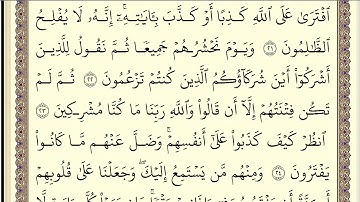 ٱفۡتَرَىٰ عَلَى ٱللَّهِ كَذِبًا أَوۡ كَذَّبَ بِـَٔايَٰتِهِۦٓۚ إِنَّهُۥ لَا يُفۡلِحُ
ٱلظَّٰلِمُونَ ٢١ وَيَوۡمَ نَحۡشُرُهُمۡ جَمِيعًا ثُمَّ نَقُولُ لِلَّذِينَ
أَشۡرَكُوٓاْ أَيۡنَ شُرَكَآؤُكُمُ ٱلَّذِينَ كُنتُمۡ تَزۡعُمُونَ ٢٢ ثُمَّ لَمۡ
تَكُن فِتۡنَتُهُمۡ إِلَّآ أَن قَالُواْ وَٱللَّهِ رَبِّنَا مَا كُنَّا مُشۡرِكِينَ ٢٣
ٱنظُرۡ كَيۡفَ كَذَبُواْ عَلَىٰٓ أَنفُسِهِمۡۚ وَضَلَّ عَنۡهُم مَّا كَانُواْ
يَفۡتَرُونَ ٢٤ وَمِنۡهُم مَّن يَسۡتَمِعُ إِلَيۡكَۖ وَجَعَلۡنَا عَلَىٰ قُلُوبِهِمۡ